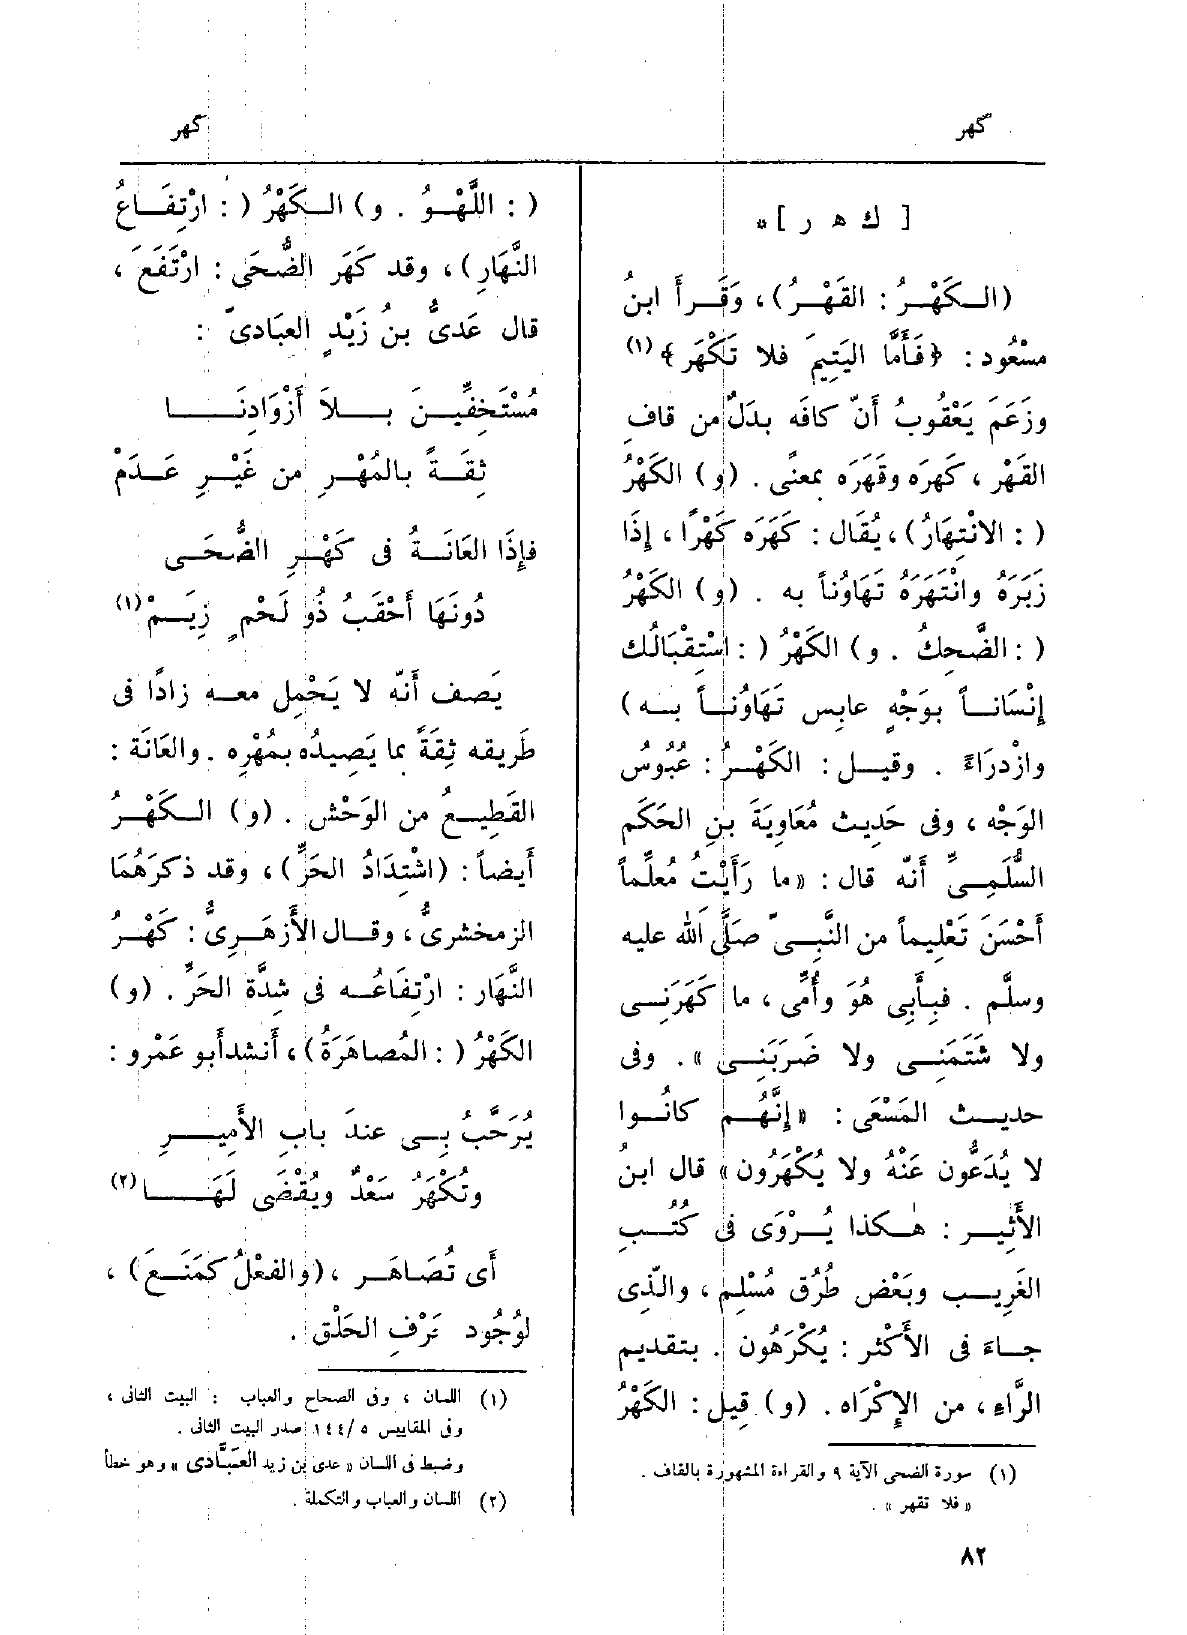 كهر
كهر
[ ك ه ر ] *
(الـكَهْـرُ : القَهْـرُ)، وَقَـرأَ ابنُ
مسْعُود : ﴿فَأَمَّا اليَتِيمَ فلا تَكْهَر﴾ (١)
وزَعَمَ يَعْقُوبُ أَنّ كافَه بدَلٌ من قافِ
القَهْر ، كهَرَه وقَهَرَه بمعنًى . (و) الكَهْرُ
( : الانْتِهارُ)، يُقَال : كَهَرَه كَهْرًا ، إِذَا
زَبَرَهُ وانْتَهَرَهُ تَهَاوُناً به . (و) الكَهْرُ
( : الضَّحِكُ . و) الكَهْرُ ( : اسْتِقْبَالُك
إِنْسَانـاً بوَجْهٍ عابِس تَهَاوُنـاً بـه )
وازْدراءً . وقيـل : الكَهْـرُ : عُبُوسُ
الوَجْه ، وفى حَدِيث مُعَاوِيَةَ بنِ الحَكَم
السُّلَمِىِّ أَنّه قال : « ما رَأَيْتُ مُعلِّماً
أَحْسَنَ تَعْلِيماً من النَّبِىّ صَلَّى الله عليه
وسلَّم . فبِأَبِى هُوَ وأُمِّى ، ما كَهَرَنِـى
ولا شَتَمَنِـى ولا ضَرَبَنِـى ». وفى
حديـث المَسْعَى : « إِنَّهُـم كانُـوا
لا يُدَعُّون عَنْهُ ولا يُكْهَرُون » قال ابنُ
الأَثِيـر : هٰكذا يُـرْوَى فى كُتُـب
الغَرِيـب وبَعْض طُرُق مُسْلِم ، والَّذِى
جـاءَ فى الأَكْثر : يُكْرَهُون . بتقديم
الرَّاءِ، من الإِكْرَاه . (و) قِيل : الكَهْرُ
(١) سورة الضحى الآية ٩ والقراءة المشهورة بالقاف .
« فلا تقهر » .
( : اللَّهْـوُ . و) الـكَهْرُ ( : ارْتِفَـاعُ
النَّهَارِ) ، وقد كَهَر الضُّحَى : ارْتَفَعَ ،
قال عَدىُّ بنُ زَيْدٍ العِبَادىّ :
مُسْتَخِفِّيـن بـلاَ أَزْوَادِنَـا
ثِقَـةً بالمُهْـرِ من غَيْـرِ عَـدَمْ
فإِذَا العَانَـةُ فى كَهْـرِ الضُّحَـى
دُونَهَا أَحْقَبُ ذُو لَحْمٍ زِيَـمْ (١)
يَصف أَنّه لا يَحْمِل معـه زادًا فى
طَرِيقه ثِقَةً بما يَصِيدُه بمُهْرِه . والعَانَة :
القَطِيـعُ من الوَحْش . (و) الـكَهْـرُ
أَيضاً : (اشْتِدَادُ الحَرِّ) ، وقد ذكرَهُمَا
الزمخشرىُّ ، وقـال الأَزْهَـرِىُّ : كَهْـرُ
النَّهَار : ارْتِفَاعُـه فى شِدَّة الحَرِّ . (و)
الكَهْرُ ( : المُصاهَرَةُ) ، أَنشد أَبو عَمْرو :
يُرَحَّبُ بـى عندَ بابِ الأَمِيـرِ
وتُكْهَرُ سَعْدٌ ويُقْضَى لَهَـا (٢)
أَى تُصَاهَـر ، (والفعْلُ كمَنَـعَ) ،
لوُجُود حَرْفِ الحَلْق .
(١) اللسان ، وفى الصحاح والعباب : البيت الثانى ،
وفى المقاييس ٥ /١٤٤ صدر البيت الثانى .
وضبط فى اللسان « عدى بن زيد العَبَّادى » وهو خطأ
(٢) اللسان والعباب والتكملة .
٨٢